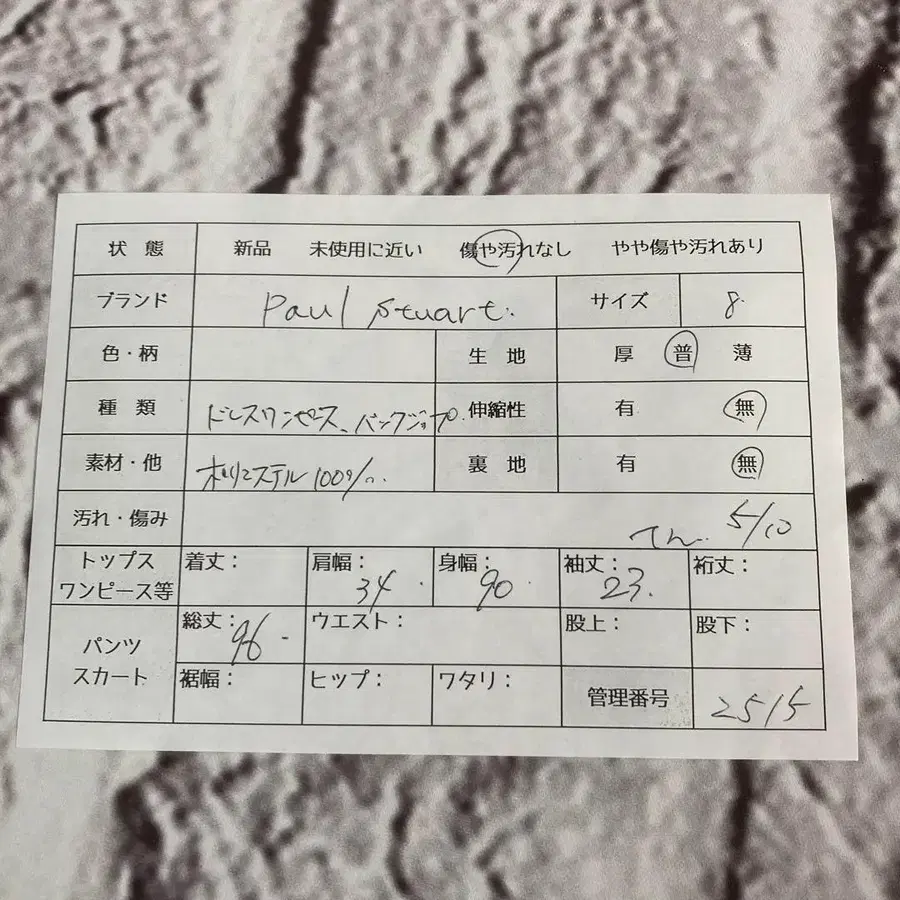 状 態 新品 未使用に近い 傷や汚れなし やや傷や汚れあり
ブランド Paul Stuart. サイズ 8.
色・柄 生 地 厚 普 薄
種 類 ドレスワンピース、バックジップ 伸縮性 有 無
素材・他 ポリエステル100%. 裏 地 有 無
汚れ・傷み 5/10
トップス ワンピース等 着丈: 肩幅: 34. 身幅: 90. 袖丈: 23. 裄丈:
パンツ スカート 総丈: 96. ウエスト: 股上: 股下:
裾幅: ヒップ: ワタリ: 管理番号 2515